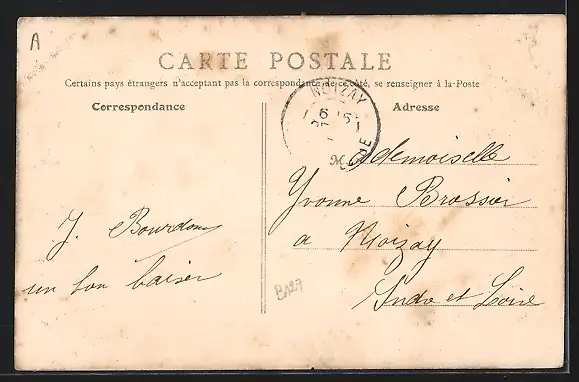 A
CARTE POSTALE
Certains pays étrangers n'acceptant pas la correspondance de ce côté, se renseigner à la Poste
Correspondance
Adresse
NOIZAY
6
Mademoiselle
Yvonne Brossier
a Noizay
Indre et Loire
J. Bourdon
un bon baiser
B127